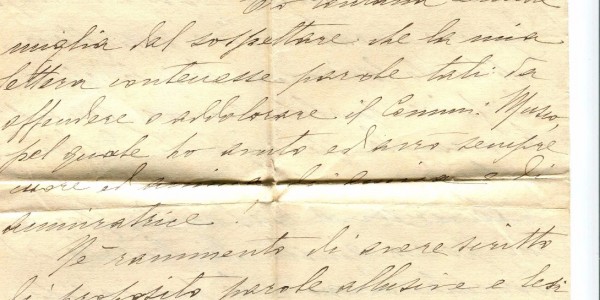 Ero lontana
miglia dal sospettare che la mia
lettera contenesse parole tali da
offendere o addolorare il Comm: Muso,
pel quale ho avuto ed avrò sempre
cuore ed anima di amica e di
ammiratrice!
Nè rammento di avere scritto
di proposito parole allusive e lesi